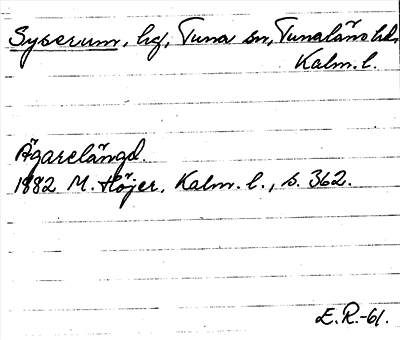 Syserum, hg, Tuna sn, Tunaläns hd,
Kalm. l.
Ägarelängd.
1882 M. Höjer, Kalm. l., s. 362.
E.R.-61.